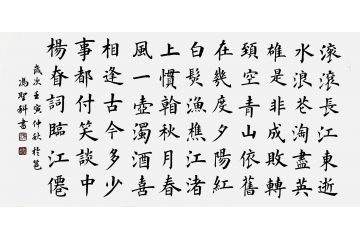 滾滾長江東逝
水浪花淘盡英
雄是非成敗轉
頭空青山依舊
在幾度夕陽紅
白髮漁樵江渚
上慣看秋月春
風一壺濁酒喜
相逢古今多少
事都付笑談中
楊昚詞臨江僊
歲次壬寅仲秋於邕
馮聖科書